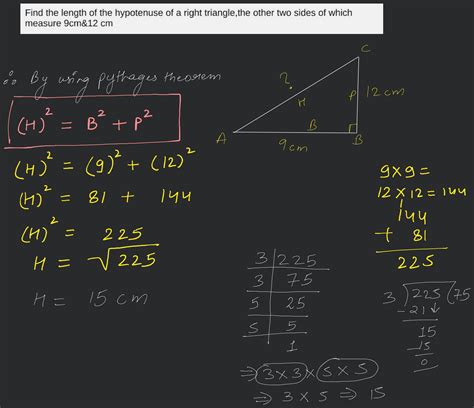 Find the length of the hypotenuse of a right triangle,the other two sides of which
measure 9cm&12 cm
∴ By using pythages theorem
(H)² = B² + P²
(H)² = (9)² + (12)²
(H)² = 81 + 144
(H)² = 225
H = √225
H = 15 cm
C
?
H
P
12 cm
A
B
B
9cm
9×9=
12×12=144
144
+ 81
225
3 | 225
3 | 75
5 | 25
5 | 5
1
⇒ 3×3 × 5×5
⇒ 3 × 5 ⇒ 15
3 ) 225 ( 75
-21↓
15
-15
0